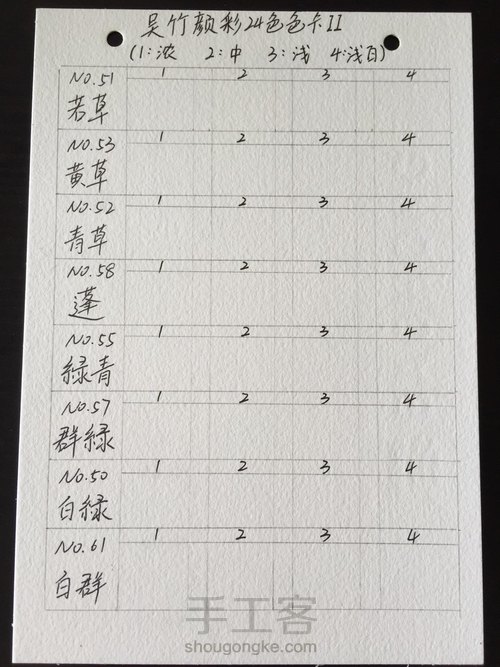 吴竹颜彩24色色卡II
(1:浓 2:中 3:浅 4:浅白)
No.51 1 2 3 4
若草
No.53 1 2 3 4
黄草
No.52 1 2 3 4
青草
No.58 1 2 3 4
蓬
No.55 1 2 3 4
緑青
No.57 1 2 3 4
群緑
No.50 1 2 3 4
白緑
No.61 1 2 3 4
白群
手工客
shougongke.com